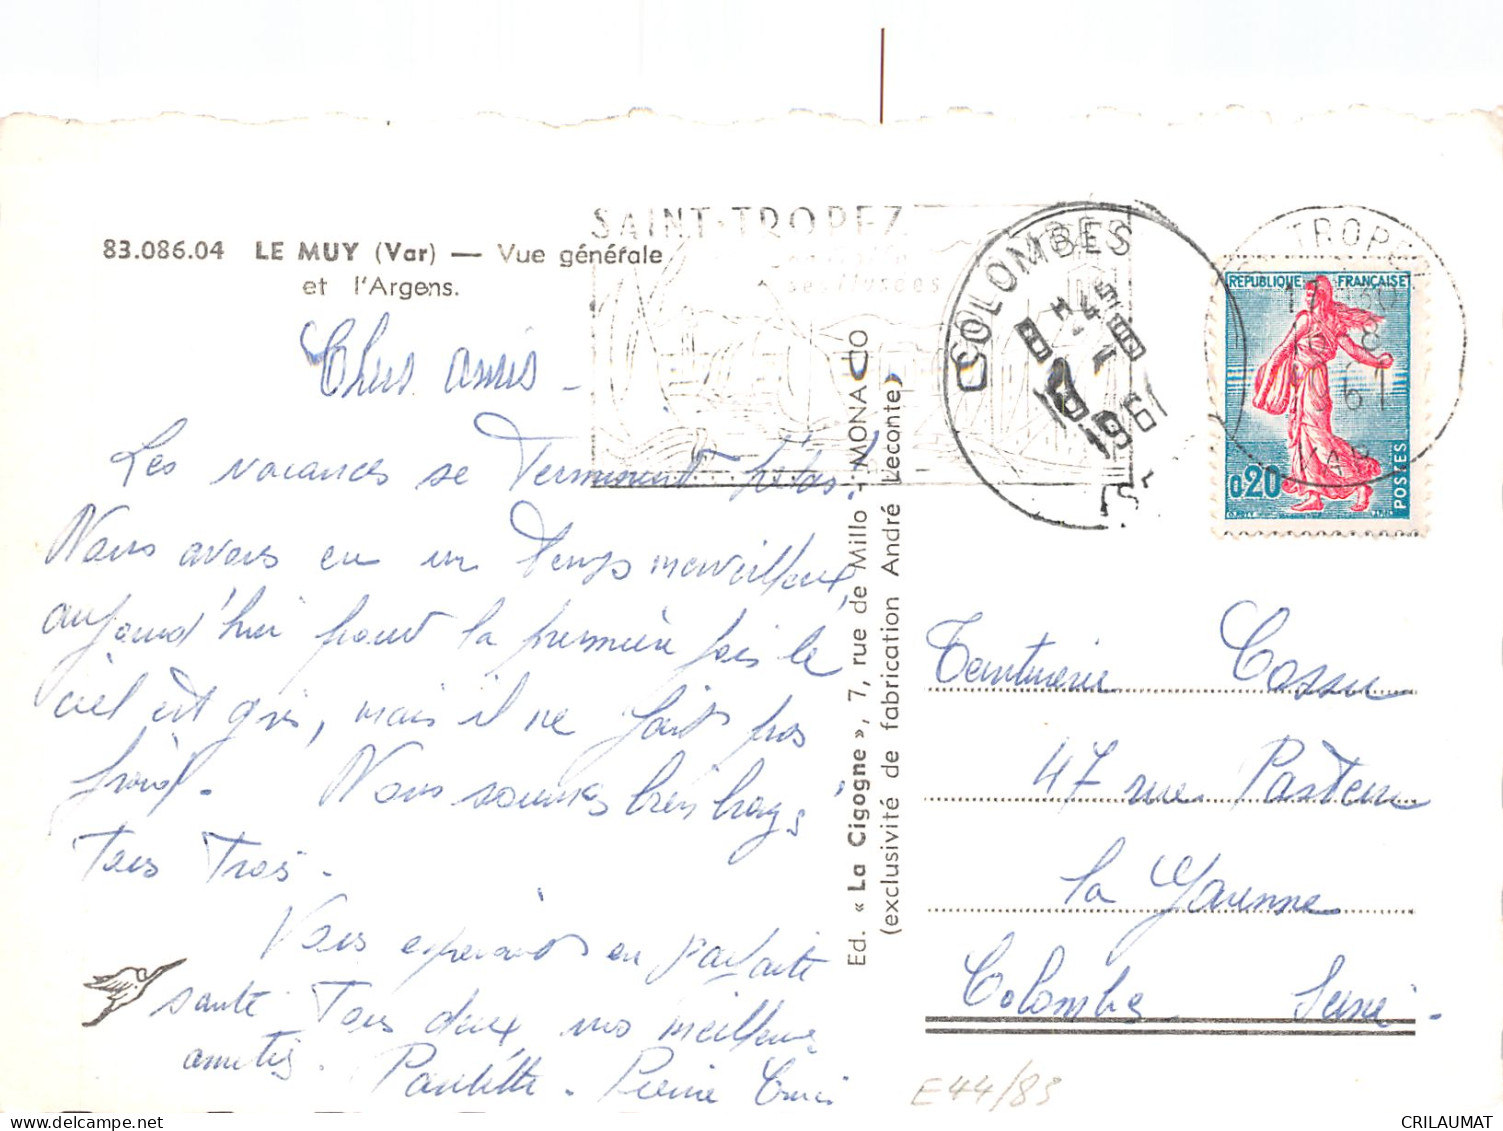 83.086.04 LE MUY (Var) — Vue générale
et l'Argens.
Chers amis -
Les vacances se terminent hélas!
Nous avons eu un temps merveilleux,
aujourd'hui pour la première fois le
ciel est gris, mais il ne fait pas
froid. Nous sommes bien bronzés
Tous Trois.
Vous espérons en parfaite
santé Tous deux nos meilleures
amitiés. Paulette - Pierre
Ed. « La Cigogne », 7, rue de Millo - MONACO
(exclusivité de fabrication André Leconte)
SAINT-TROPEZ
COLOMBES
1961
TROPEZ
VAR
RÉPUBLIQUE FRANÇAISE
0,20
POSTES
Teinturerie Cossu
47 rue Pasteur
La Garenne
Colombes Seine.
E44/83
CRILAUMAT